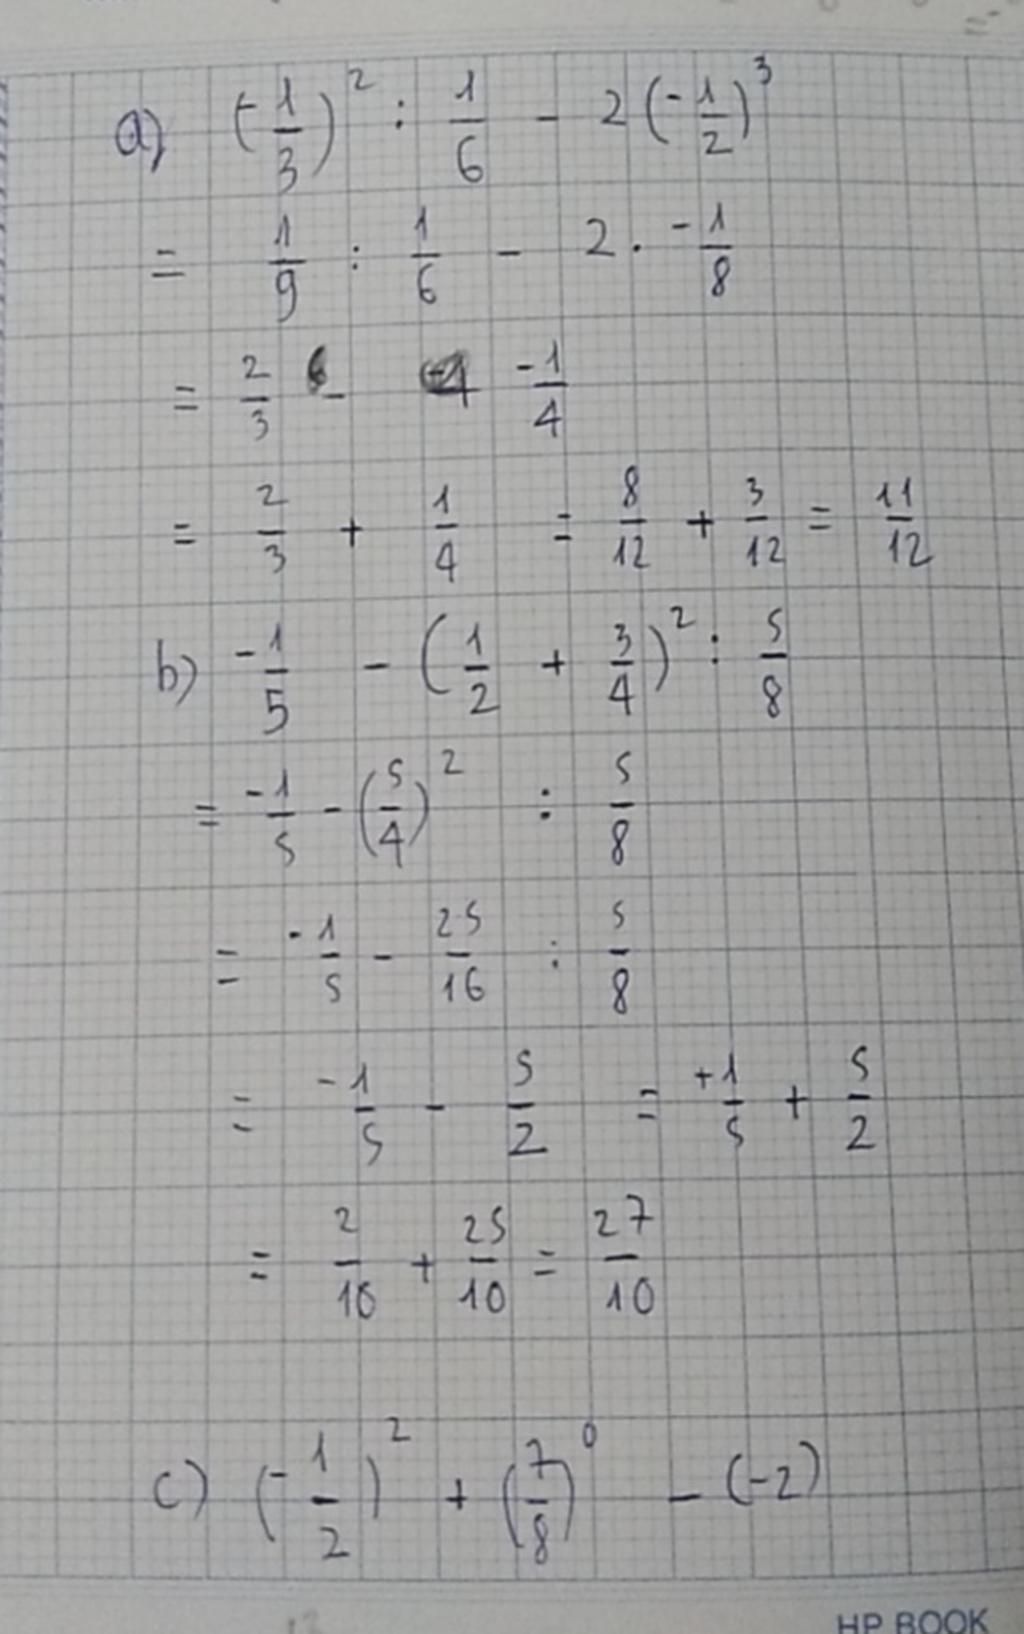 a) (-1/3)² : 1/6 - 2(-1/2)³
= 1/9 : 1/6 - 2 . -1/8
= 2/3 - -1/4
= 2/3 + 1/4 = 8/12 + 3/12 = 11/12
b) -1/5 - (1/2 + 3/4)² : 5/8
= -1/5 - (5/4)² : 5/8
= -1/5 - 25/16 : 5/8
= -1/5 - 5/2 = +1/5 + 5/2
= 2/10 + 25/10 = 27/10
c) (-1/2)² + (7/8)⁰ - (-2)
HP BOOK